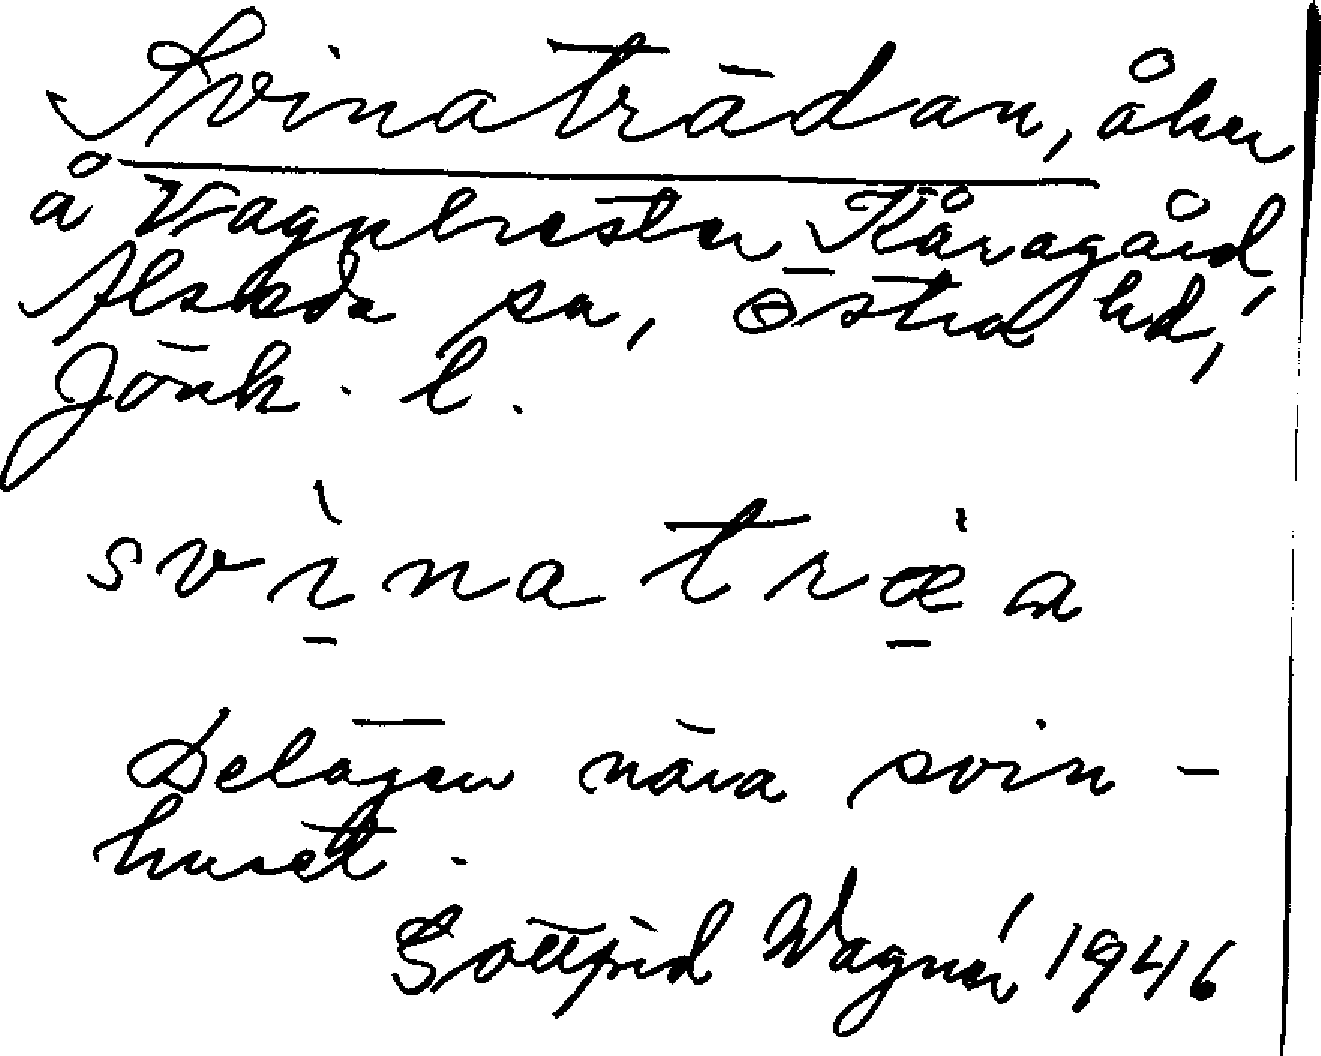 Svinaträdan, åker
å Vagnhester Kåragård,
Alseda sn, Östra hd,
Jönk. l.
svìnatræ̀a
Delägen nära svin-
huset.
Gottfrid Wagnér 1946